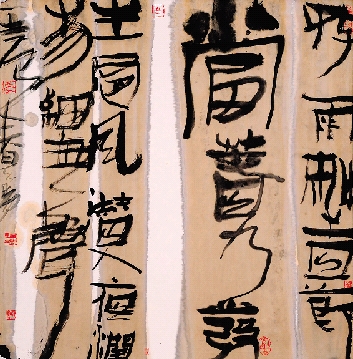 好雨知時節
當春乃發
生隨風潛入夜潤
物細無聲